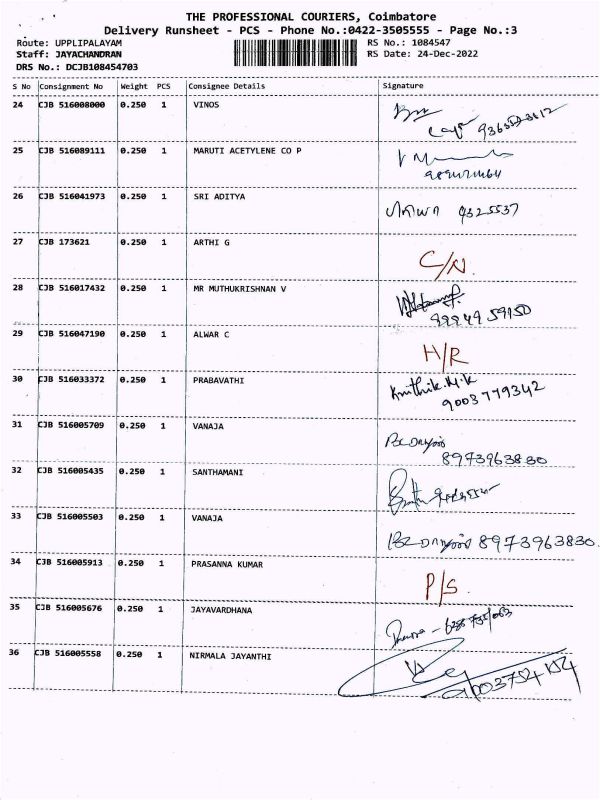 THE PROFESSIONAL COURIERS, Coimbatore
Delivery Runsheet - PCS - Phone No.:0422-3505555 - Page No.:3
Route: UPPLIPALAYAM RS No.: 1084547
Staff: JAYACHANDRAN RS Date: 24-Dec-2022
DRS No.: DCJB108454703
S No Consignment No Weight PCS Consignee Details Signature
24 CJB 516008000 0.250 1 VINOS
25 CJB 516089111 0.250 1 MARUTI ACETYLENE CO P
26 CJB 516041973 0.250 1 SRI ADITYA 9325537
27 CJB 173621 0.250 1 ARTHI G
C/N.
28 CJB 516017432 0.250 1 MR MUTHUKRISHNAN V
99949 59150
29 CJB 516047190 0.250 1 ALWAR C
H/R
30 CJB 516033372 0.250 1 PRABAVATHI Krithik.M.K
9003779342
31 CJB 516005709 0.250 1 VANAJA
8973963830
32 CJB 516005435 0.250 1 SANTHAMANI
33 CJB 516005503 0.250 1 VANAJA
8973963830
34 CJB 516005913 0.250 1 PRASANNA KUMAR
P/S.
35 CJB 516005676 0.250 1 JAYAVARDHANA
36 CJB 516005558 0.250 1 NIRMALA JAYANTHI